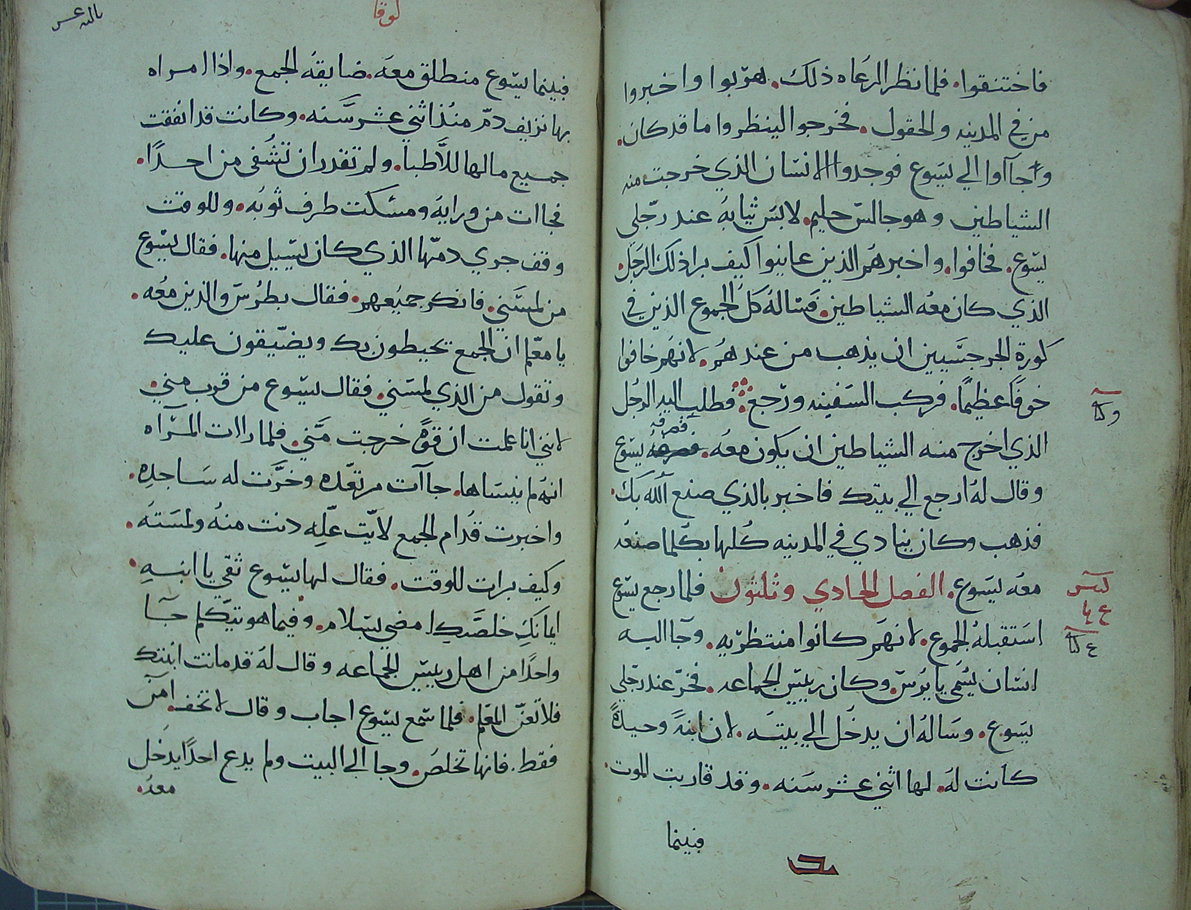 فاختنقوا. فلما نظر الرعاه ذلك. هربوا واخبروا
من في المدينه والحقول. فخرجوا لينظروا ما قد كان.
وجاآوا الي يسوع فوجدوا الانسان الذي خرجت منه
الشياطين وهو جالس حليم. لابس ثيابه عند رجلي
يسوع. فخافوا. واخبرهم الذين عاينوا كيف برا ذلك الرجل.
الذي كان معه الشياطين. فساله كل الجموع الذين في
كورة الجرجسيين ان يذهب من عندهم. لانهم خافوا
خوفًا عظيمًا. فركب السفينه ورجع. فطلب اليه الرجل
الذي اخرج منه الشياطين ان يكون معه. فصرفه يسوع
وقال له ارجع الي بيتك فاخبر بالذي صنع الله بك.
فذهب وكان ينادي في المدينه كلها بكلما صنعه
معه يسوع. الفصل الحادي وثلثون فلما رجع يسوع
استقبله الجموع. لانهم كانوا منتظريه. وجا اليه
انسان يسمي يايرس. وكان رييس الجماعه. فخر عند رجلي
يسوع. وساله ان يدخل الي بيته. لان ابنةً وحيدةً
كانت له. لها اثني عشر سنه. وقد قاربت الموت.
فبينما
لوقا
فبينما يسوع منطلق معه. ضايقه الجمع. واذا امراه
بها نزيف دم منذ اثني عشر سنه. وكانت قد انفقت
جميع مالها للاطبا. ولم تقدر ان تشفي من احدًا.
فجاات من ورايه ومسكت طرف ثوبه. وللوقت
وقف جري دمها الذي كان يسيل منها. فقال يسوع
من لمسني. فانكر جميعهم. فقال بطرس والذين معه.
يا معلم ان الجمع تحيطون بك ويضيقون عليك
وتقول من الذي لمسني. فقال يسوع من قرب مني.
لانني انا علمت ان قوةً خرجت مني. فلما راات المرآه
انه لم ينساها. جاآت مرتعده وخرت له ساجده.
واخبرت قدام الجمع لايت عله دنت منه ولمسته.
وكيف برات للوقت. فقال لها يسوع ثقي يا ابنه.
ايمانك خلصك امضي بسلام. وفيما هو يتكلم جا
واحدًا من اهل رييس الجماعه وقال له قد ماتت ابنتك
فلا تعن المعلم. فلما سمع يسوع اجاب وقال لا تخف. امن
فقط. فانها تخلص. وجا الي البيت ولم يدع احدًا يدخل
معه.